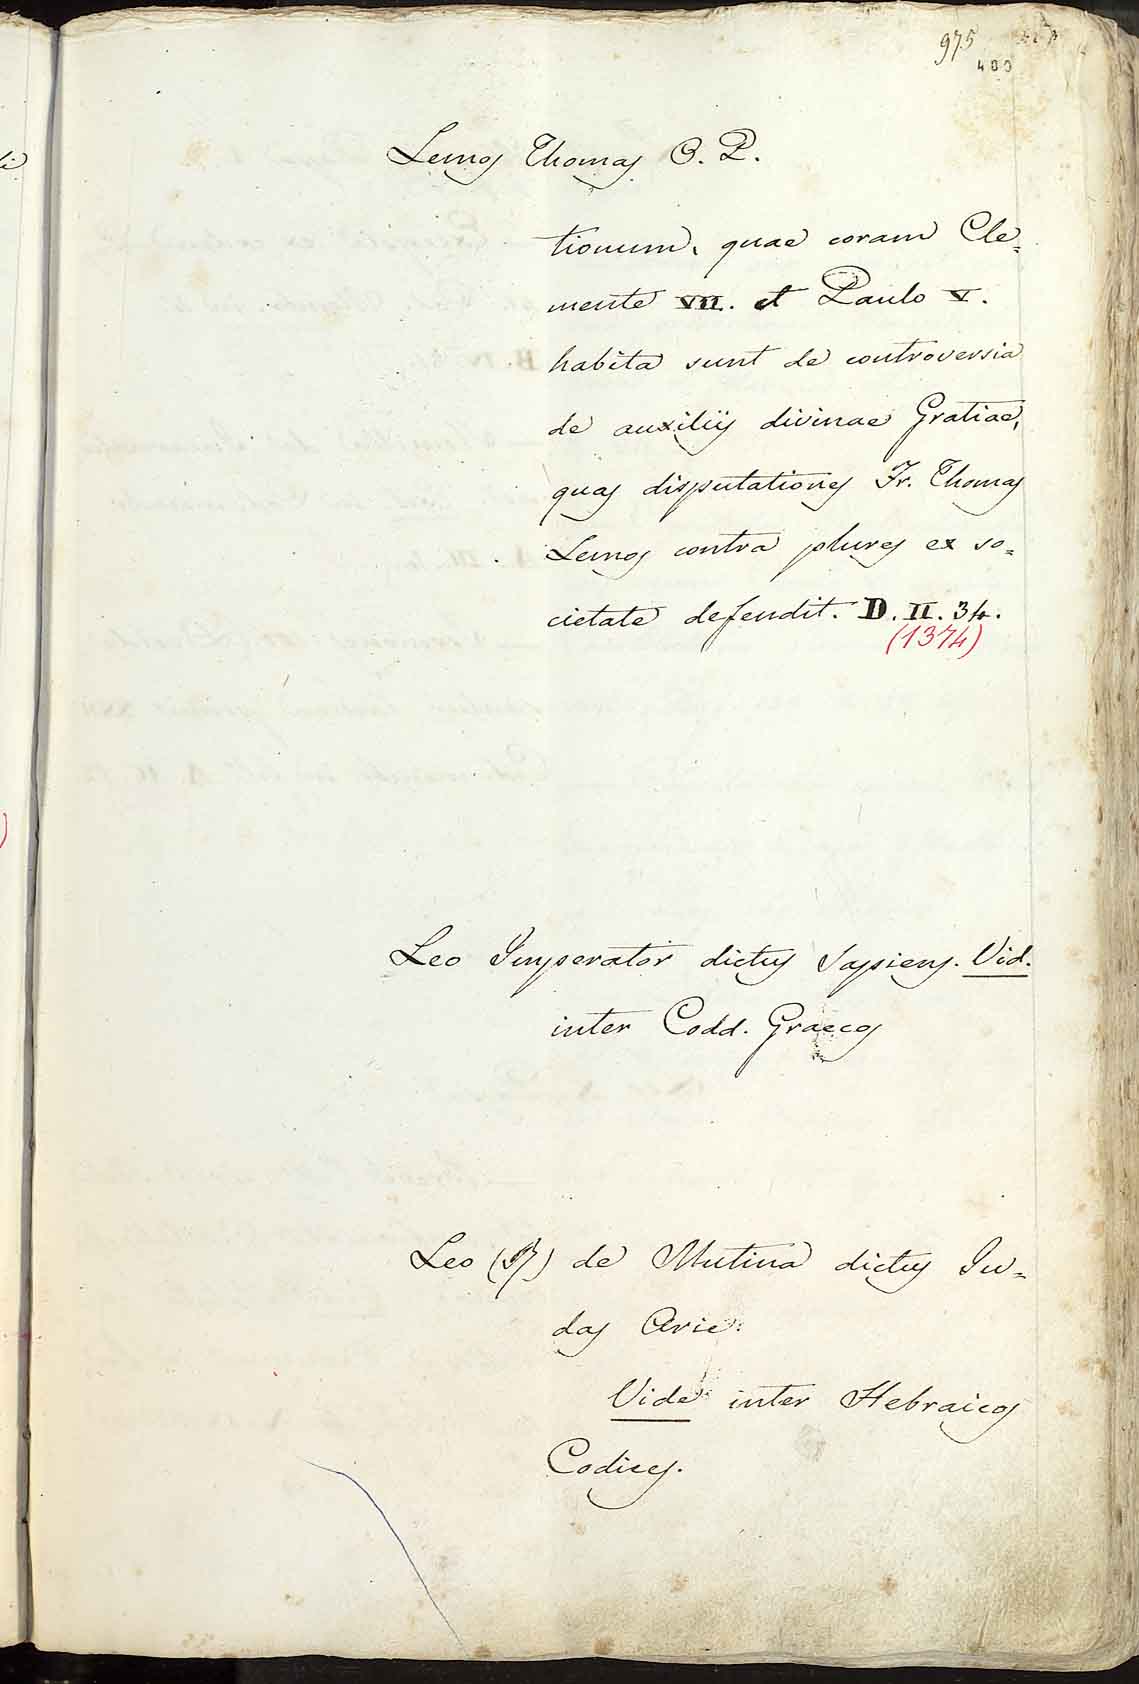 975
400
Lemos Thomas O. P.
tionum, quae coram Cle=
mente VII. et Paulo V.
habita sunt de controversia
de auxiliis divinae Gratiae,
quas disputationes Fr. Thomas
Lemos contra plures ex so=
cietate defendit. D. II. 34.
(1374)
Leo Imperator dictus Sapiens. Vid.
inter Codd. Graecos
Leo de Mutina dictus Iu=
das Arie.
Vide inter Hebraicos
Codices.